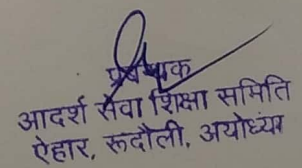 प्रबन्धक
आदर्श सेवा शिक्षा समिति
ऐहार, रूदौली, अयोध्या